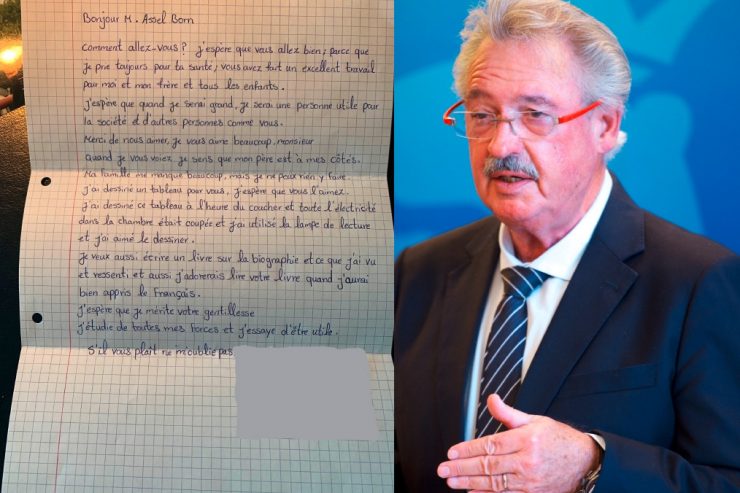 Bonjour M. Assel Born
Comment allez-vous? J'espère que vous allez bien; parce que
je prie toujours pour ta santé, vous avez fait un excellent travail
pour moi et mon frère et tous les enfants.
J'espère que quand je serai grand, je serai une personne utile pour
la société et d'autres personnes comme vous.
Merci de nous aimer, je vous aime beaucoup, monsieur
Quand je vous voiez, je sens que mon père est à mes côtés.
Ma famille me manque beaucoup, mais je ne peux rien y faire.
J'ai dessiné un tableau pour vous, j'espère que vous l'aimez.
J'ai dessiné ce tableau à l'heure du coucher et toute l'électricité
dans la chambre était coupée et j'ai utilisé la lampe de lecture
et j'ai aimé le dessiner.
Je veux aussi écrire un livre sur la biographie et ce que j'ai vu
et ressenti, et aussi j'adorerais lire votre livre quand j'aurai
bien appris le Français.
J'espère que je mérite votre gentillesse
J'étudie de toutes mes forces et j'essaye d'être utile.
S'il vous plaît ne m'oubliez pas